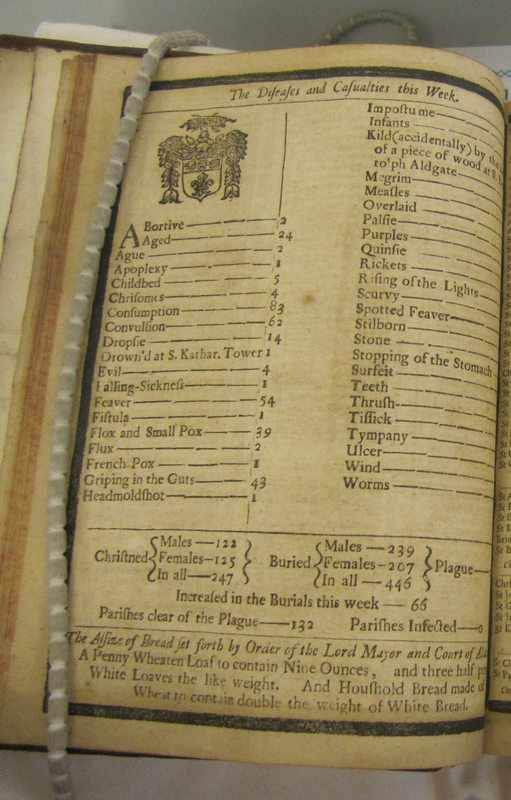 The Diseases and Casualties this Week.
ABortive — 2
Aged — 24
Ague — 2
Apoplexy — 1
Childbed — 5
Chrisomes — 4
Consumption — 83
Convulsion — 62
Dropsie — 14
Drown'd at S. Kathar. Tower 1
Evil — 4
Falling-Sickness — 1
Feaver — 54
Fistula — 1
Flox and Small Pox — 39
Flux — 2
French Pox — 1
Griping in the Guts — 43
Headmoldshot — 1
Impostume
Infants
Kild (accidentally) by the
of a piece of wood at S.
to'ph Aldgate
Megrim
Measles
Overlaid
Palsie
Purples
Quinsie
Rickets
Rising of the Lights
Scurvy
Spotted Feaver
Stilborn
Stone
Stopping of the Stomach
Surfeit
Teeth
Thrush
Tissick
Tympany
Ulcer
Wind
Worms
Christned { Males — 122 Females — 125 In all — 247 } Buried { Males — 239 Females — 207 In all — 446 } Plague —
Increased in the Burials this week — 66
Parishes clear of the Plague — 132 Parishes Infected — 0
The Assize of Bread set forth by Order of the Lord Mayor and Court of
A Penny Wheaten Loaf to contain Nine Ounces, and three half
White Loaves the like weight. And Houshold Bread made of
Wheat to contain double the weight of White Bread.